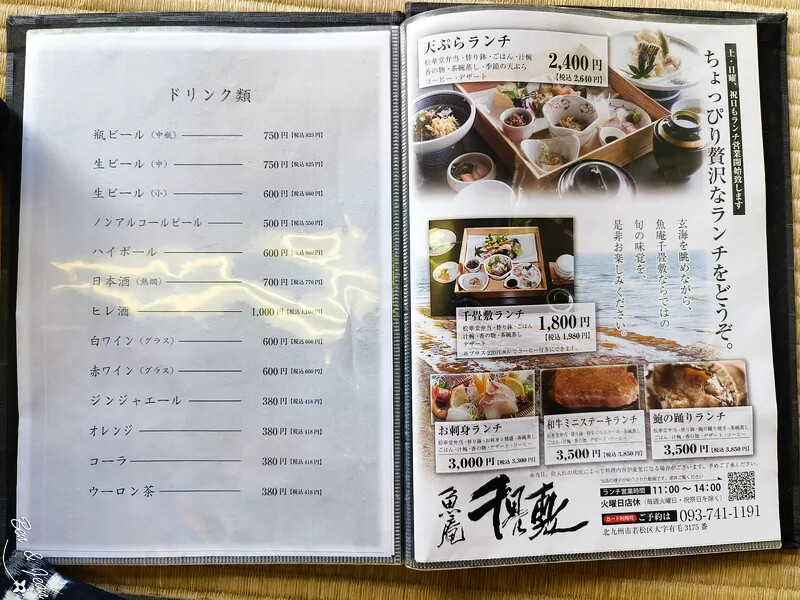 ドリンク類
瓶ビール（中瓶） 750円【税込825円】
生ビール（中） 750円【税込825円】
生ビール（小） 600円【税込660円】
ノンアルコールビール 500円【税込550円】
ハイボール 600円【税込660円】
日本酒（熱燗） 700円【税込770円】
ヒレ酒 1,000円【税込1,100円】
白ワイン（グラス） 600円【税込660円】
赤ワイン（グラス） 600円【税込660円】
ジンジャエール 380円【税込418円】
オレンジ 380円【税込418円】
コーラ 380円【税込418円】
ウーロン茶 380円【税込418円】
土・日曜、祝日もランチ営業開始致します
ちょっぴり贅沢なランチをどうぞ。
天ぷらランチ
松華堂弁当・替り鉢・ごはん・汁椀
香の物・茶碗蒸し・季節の天ぷら
コーヒー・デザート
2,400円
【税込2,640円】
玄海を眺めながら、
魚庵千畳敷ならではの
旬の味覚を、
是非お楽しみください。
千畳敷ランチ
松華堂弁当・替り鉢・ごはん
汁椀・香の物・茶碗蒸し
デザート
※プラス220円(税込)でコーヒー付きにできます。
1,800円
【税込1,980円】
お刺身ランチ
3,000円【税込3,300円】
和牛ミニステーキランチ
3,500円【税込3,850円】
鮑の踊りランチ
3,500円【税込3,850円】
※当日、仕入れの状況によって料理内容が変更になる場合がございます。予めご了承ください。
ランチ営業時間 11:00〜14:00
火曜日店休（毎週火曜日・祝祭日を除く）
カード利用可 ご予約は 093-741-1191
北九州市若松区大字有毛3175番
魚庵 千畳敷